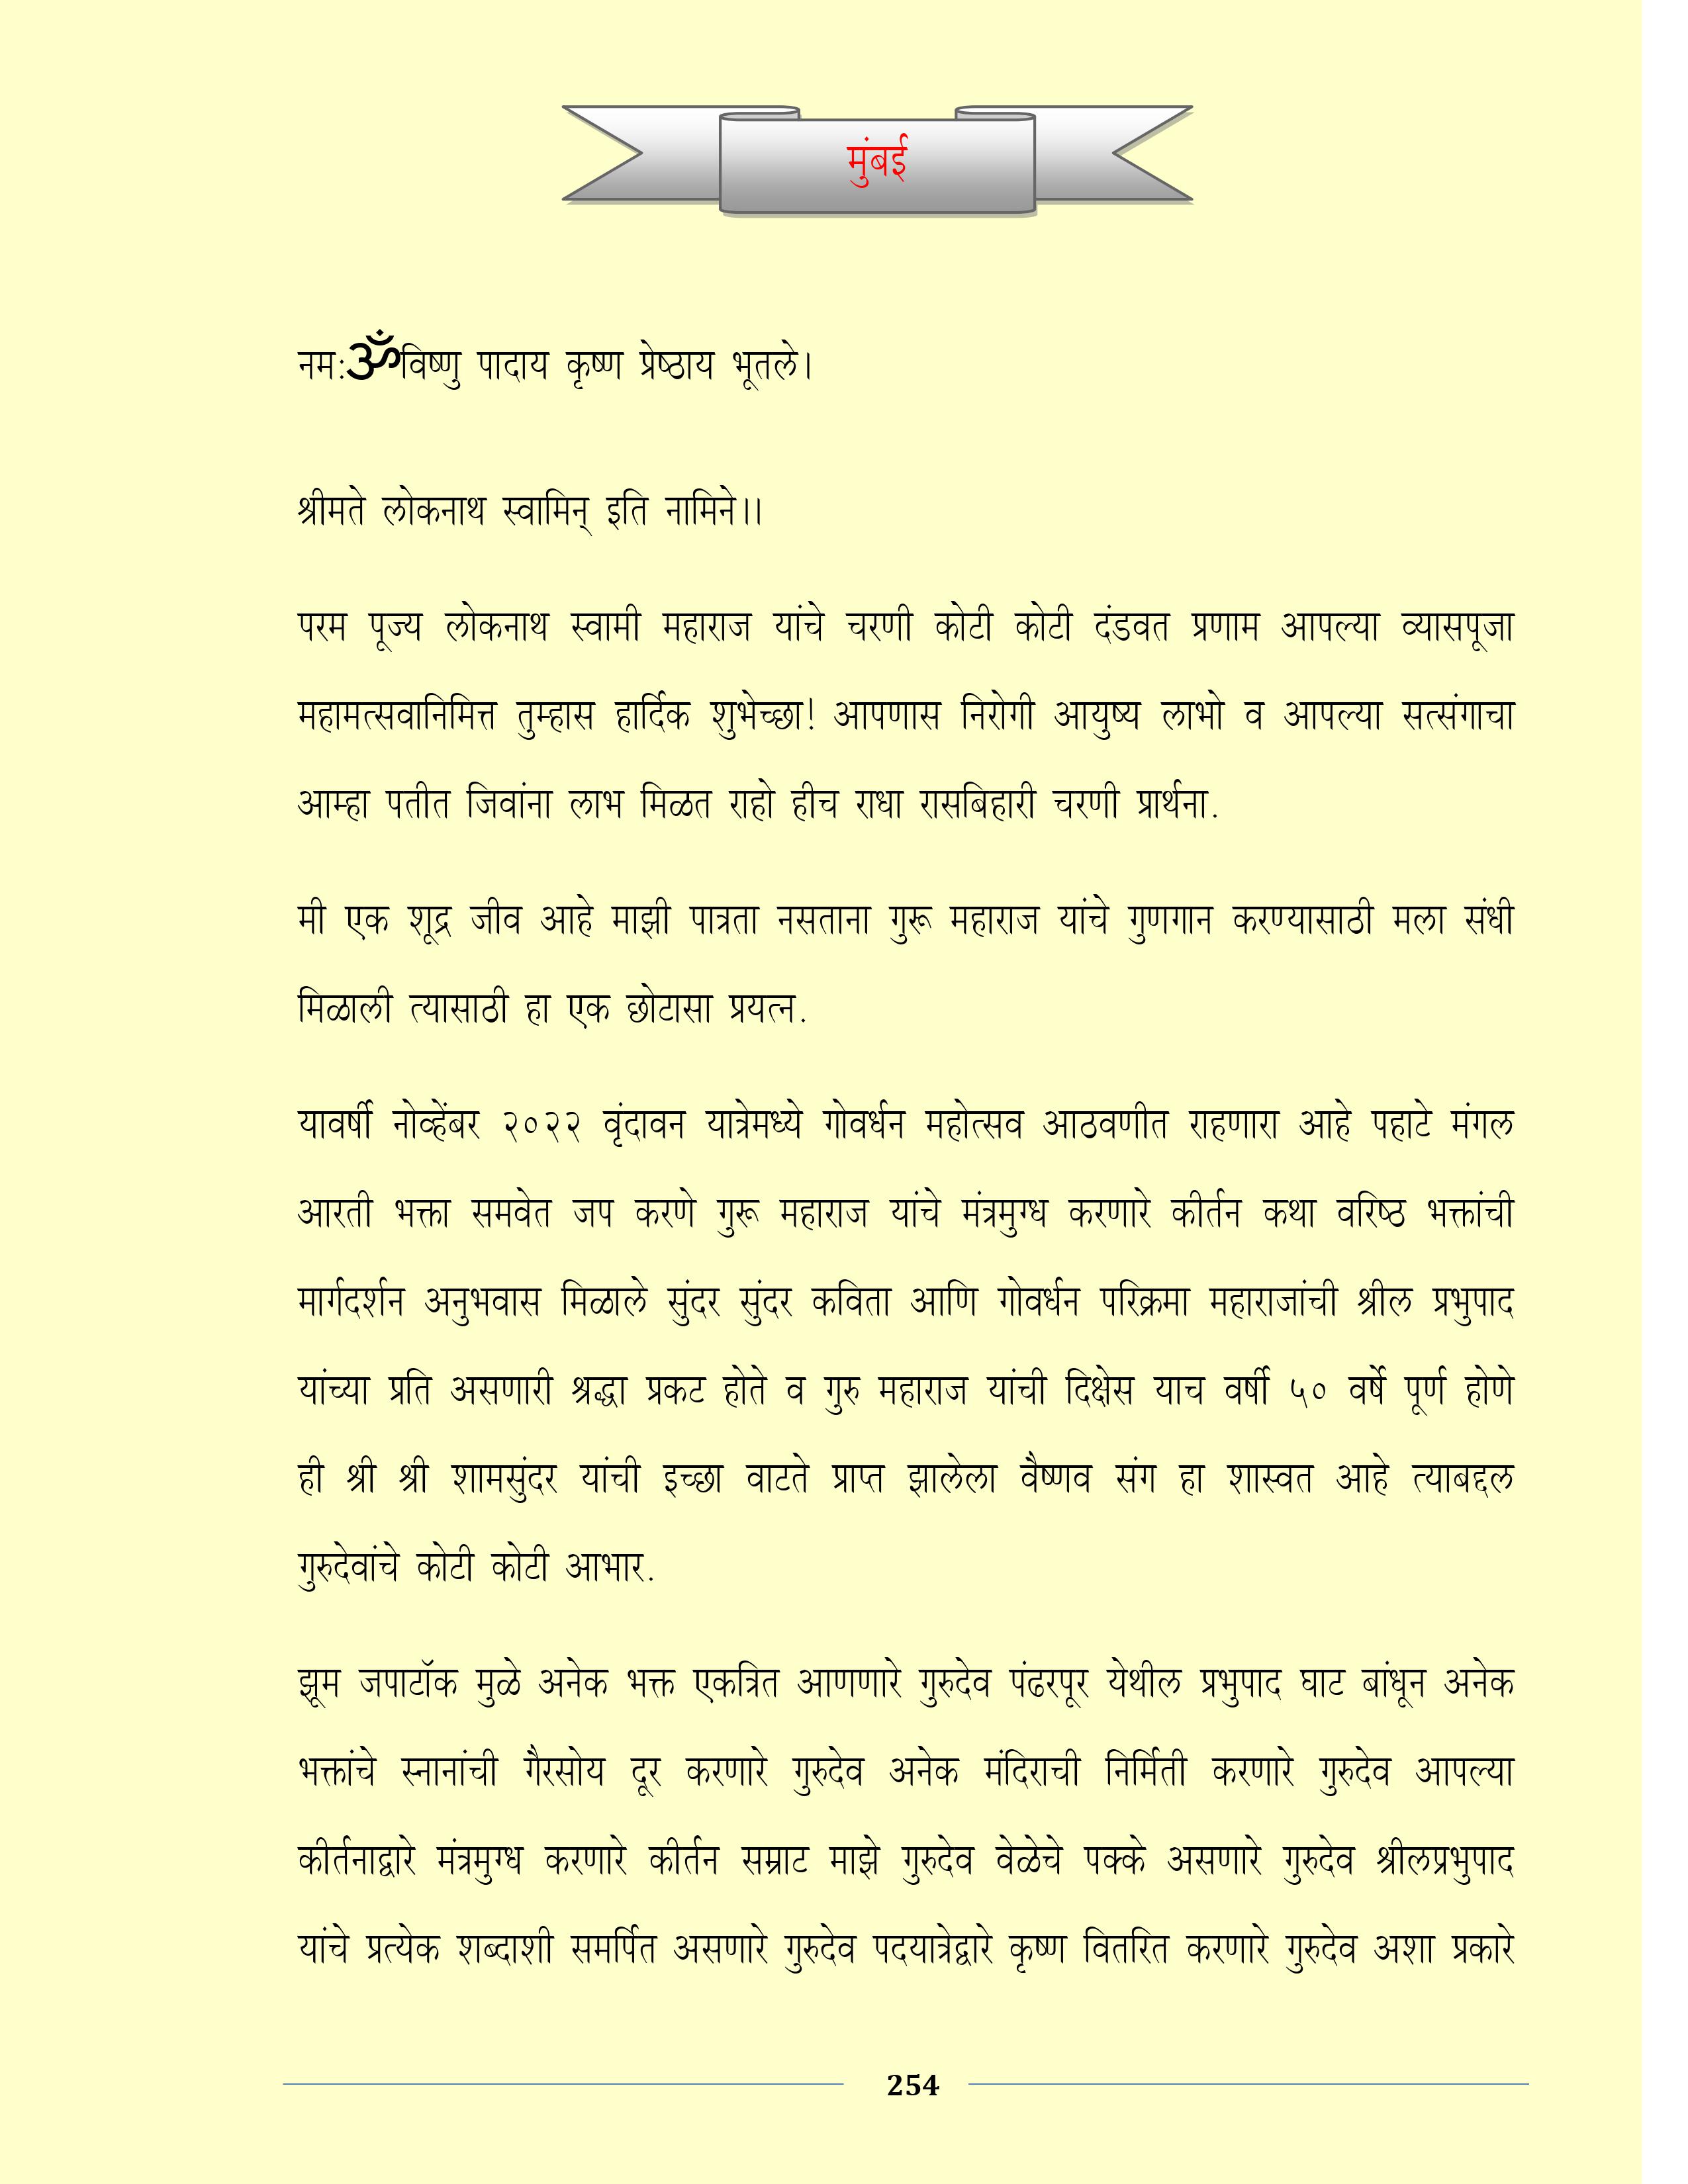 मुंबई
नमःॐविष्णु पादाय कृष्ण प्रेष्ठाय भूतले।
श्रीमते लोकनाथ स्वामिन् इति नामिने।।
परम पूज्य लोकनाथ स्वामी महाराज यांचे चरणी कोटी कोटी दंडवत प्रणाम आपल्या व्यासपूजा
महामत्सवानिमित्त तुम्हास हार्दिक शुभेच्छा! आपणास निरोगी आयुष्य लाभो व आपल्या सत्संगाचा
आम्हा पतीत जिवांना लाभ मिळत राहो हीच राधा रासबिहारी चरणी प्रार्थना.
मी एक शूद्र जीव आहे माझी पात्रता नसताना गुरू महाराज यांचे गुणगान करण्यासाठी मला संधी
मिळाली त्यासाठी हा एक छोटासा प्रयत्न.
यावर्षी नोव्हेंबर २०२२ वृंदावन यात्रेमध्ये गोवर्धन महोत्सव आठवणीत राहणारा आहे पहाटे मंगल
आरती भक्ता समवेत जप करणे गुरू महाराज यांचे मंत्रमुग्ध करणारे कीर्तन कथा वरिष्ठ भक्तांची
मार्गदर्शन अनुभवास मिळाले सुंदर सुंदर कविता आणि गोवर्धन परिक्रमा महाराजांची श्रील प्रभुपाद
यांच्या प्रति असणारी श्रद्धा प्रकट होते व गुरु महाराज यांची दिक्षेस याच वर्षी ५० वर्षे पूर्ण होणे
ही श्री श्री शामसुंदर यांची इच्छा वाटते प्राप्त झालेला वैष्णव संग हा शास्वत आहे त्याबद्दल
गुरुदेवांचे कोटी कोटी आभार.
झूम जपाटॉक मुळे अनेक भक्त एकत्रित आणणारे गुरुदेव पंढरपूर येथील प्रभुपाद घाट बांधून अनेक
भक्तांचे स्नानांची गैरसोय दूर करणारे गुरुदेव अनेक मंदिराची निर्मिती करणारे गुरुदेव आपल्या
कीर्तनाद्वारे मंत्रमुग्ध करणारे कीर्तन सम्राट माझे गुरुदेव वेळेचे पक्के असणारे गुरुदेव श्रीलप्रभुपाद
यांचे प्रत्येक शब्दाशी समर्पित असणारे गुरुदेव पदयात्रेद्वारे कृष्ण वितरित करणारे गुरुदेव अशा प्रकारे
254